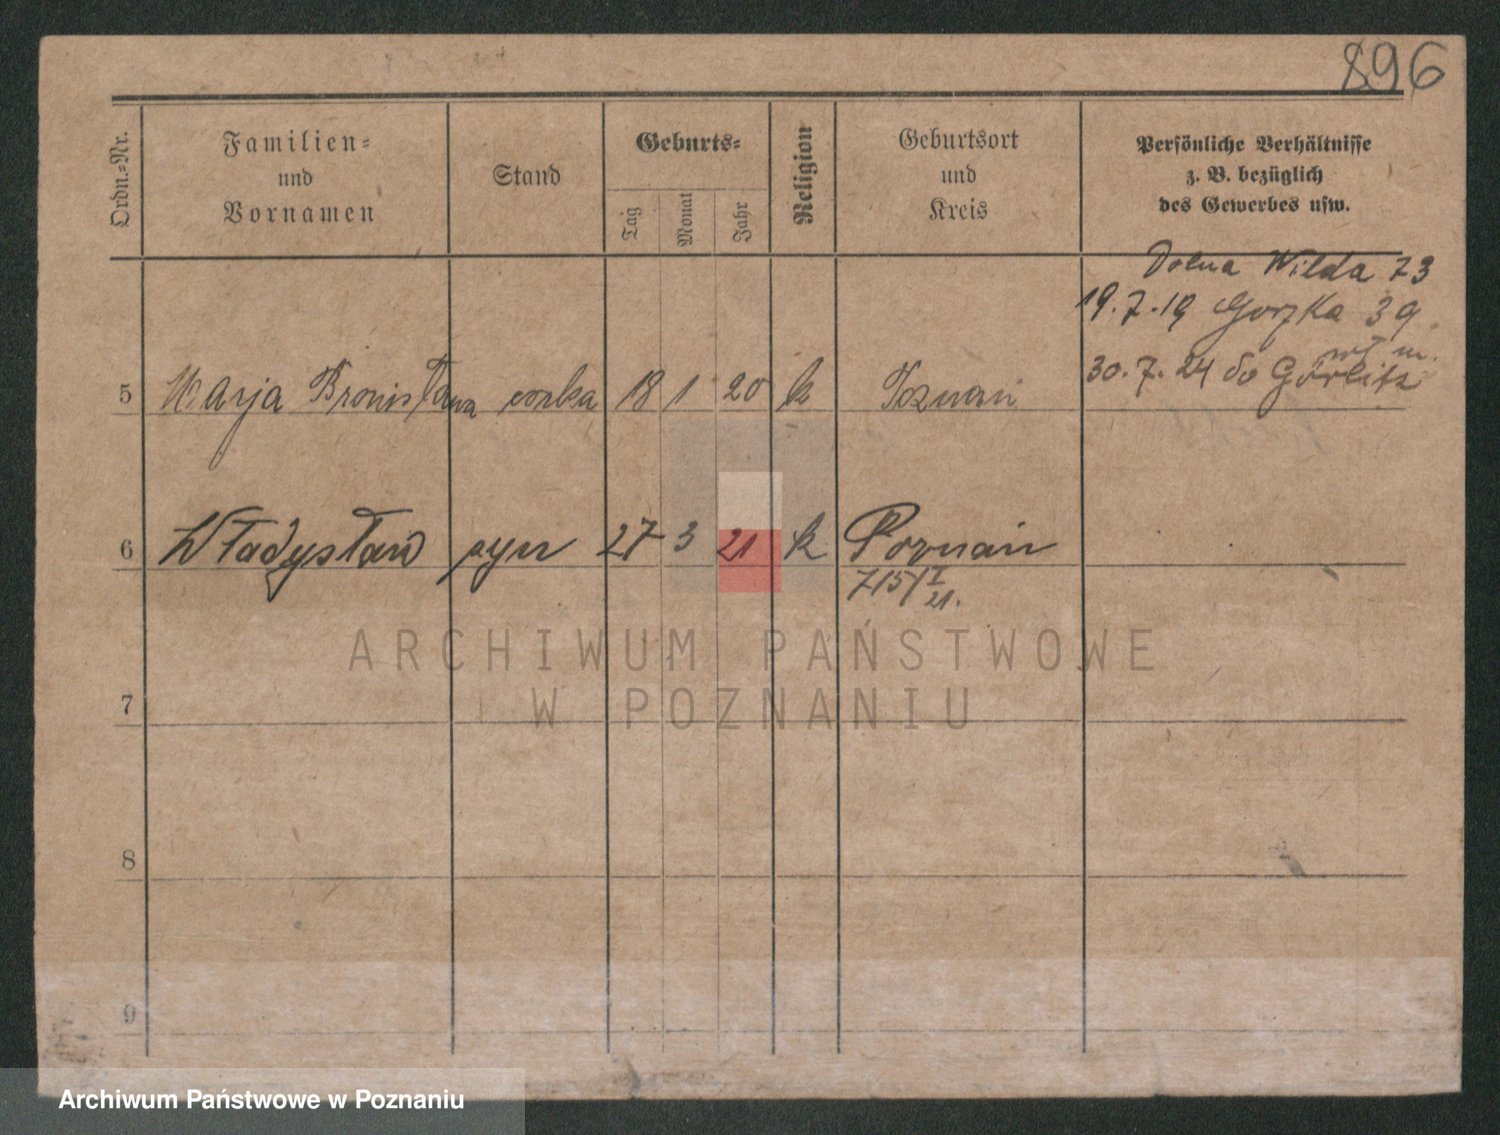 896
Ordn.-Nr.
Familien-
und
Vornamen
Stand
Geburts-
Tag
Monat
Jahr
Religion
Geburtsort
und
Kreis
Persönliche Verhältnisse
z. B. bezüglich
des Gewerbes usw.
Dolna Wilda 73
19.7.19 Gorzka 39
30.7.24 do Görlitz
5 Marja Bronisława corka 18 1 20 k Poznań
6 Władysław syn 27 3 21 k Poznań
715/I
21.
ARCHIWUM PAŃSTWOWE
W POZNANIU
7
8
9
Archiwum Państwowe w Poznaniu